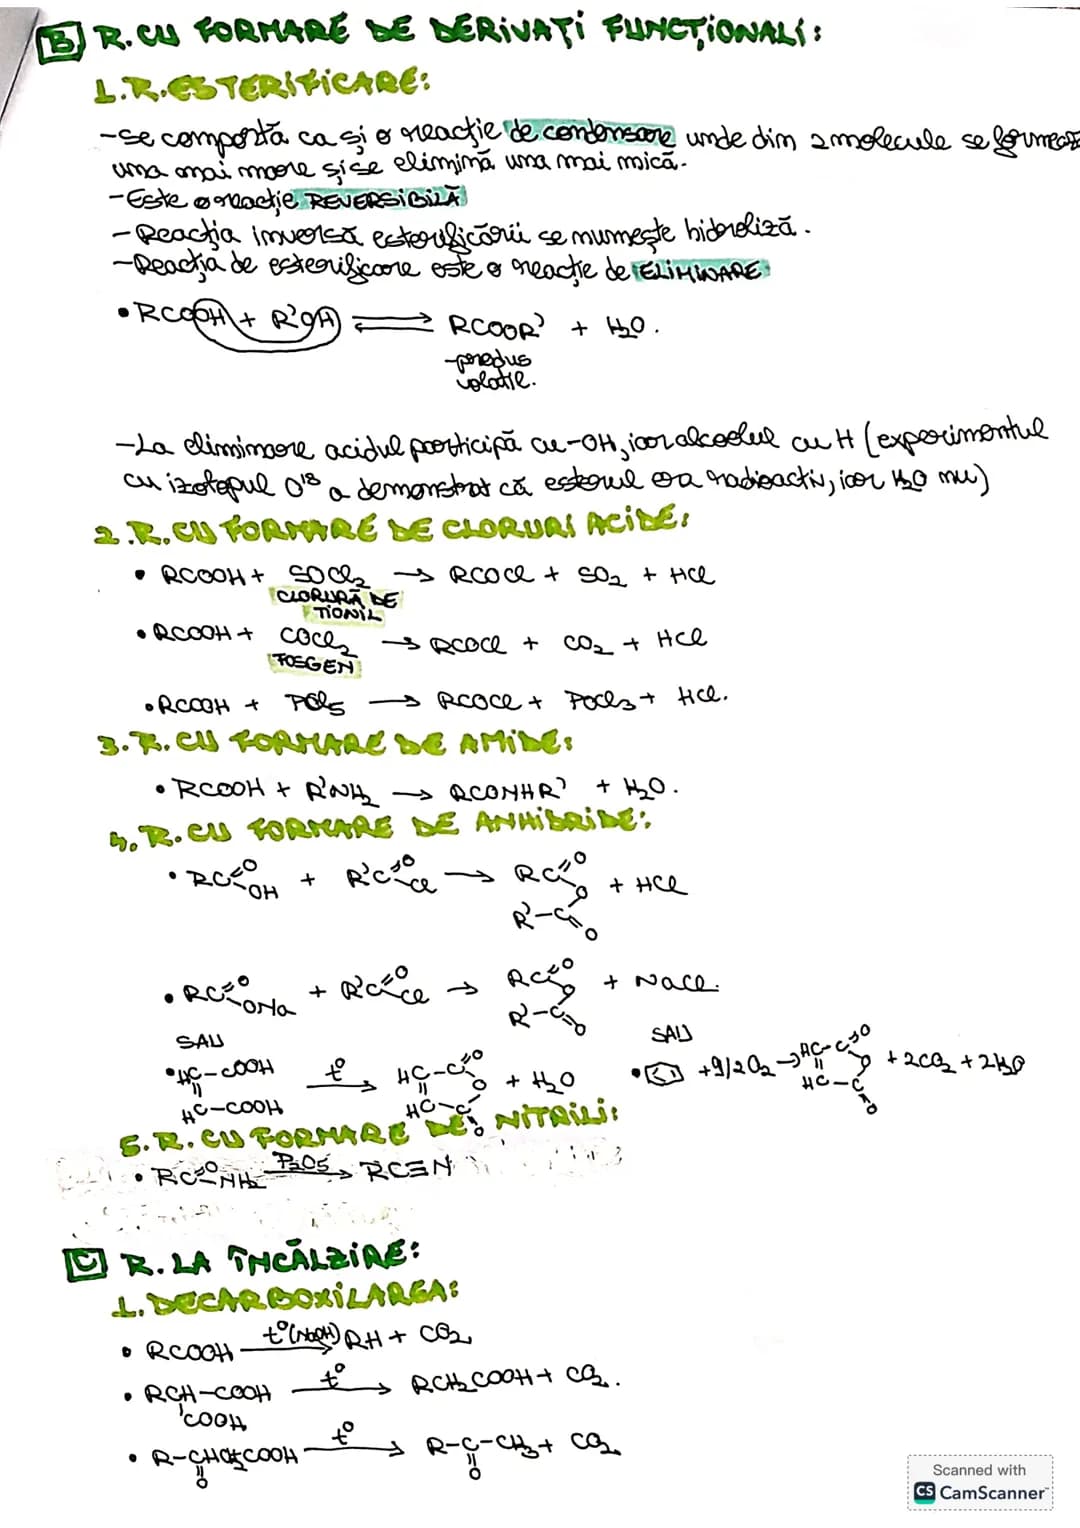 B R. CU FORMARE DE DERIVAȚI FUNCȚIONALI:
1. R. ESTERIFICARE:
-se comportă ca și o reacție de condensare unde din 2 molecule se formează
una mai mare și se elimină una mai mică.
-Este o reacție REVERSIBILĂ
-Reacția inversă esterificării se numește hidroliză.
-Reacția de esterificare este o reacție de ELIMINARE
• RCOOH + R'OH ⇌ RCOOR' + H2O.
-produs
volatil.
-La eliminare acidul participă cu -OH, iar alcoolul cu H (experimentul
cu izotopul O18 a demonstrat că esterul era radioactiv, iar H2O nu)
2. R. CU FORMARE DE CLORURI ACIDE:
• RCOOH + SOCl2 → RCOCl + SO2 + HCl
CLORURĂ DE
TIONIL
• RCOOH + COCl2 → RCOCl + CO2 + HCl
FOSGEN
• RCOOH + PCl5 → RCOCl + POCl3 + HCl.
3. R. CU FORMARE DE AMIDE:
• RCOOH + R'NH2 → RCONHR' + H2O.
4. R. CU FORMARE DE ANHIDRIDE:
• RC=O OH + R'C=O Cl → RC=O O R'-C=O + HCl
• RC=O ONa + R'C=O Cl → RC=O O R'-C=O + NaCl.
SAU SAU
• HC-COOH || HC-COOH t° → HC-C=O || O HC-C=O + H2O • + 9/2 O2 → HC-C=O || O HC-C=O + 2CO2 + 2H2O
5. R. CU FORMARE DE NITRILI:
• RC=O NH2 P2O5 → RC≡N
C R. LA ÎNCĂLZIRE:
1. DECARBOXILAREA:
• RCOOH t°(NaOH) → RH + CO2
• RCH-COOH t° → RCH2COOH + CO2.
COOH
• R-CHCH2COOH t° → R-C-CH3 + CO2
|| O || O
Scanned with
CS CamScanner